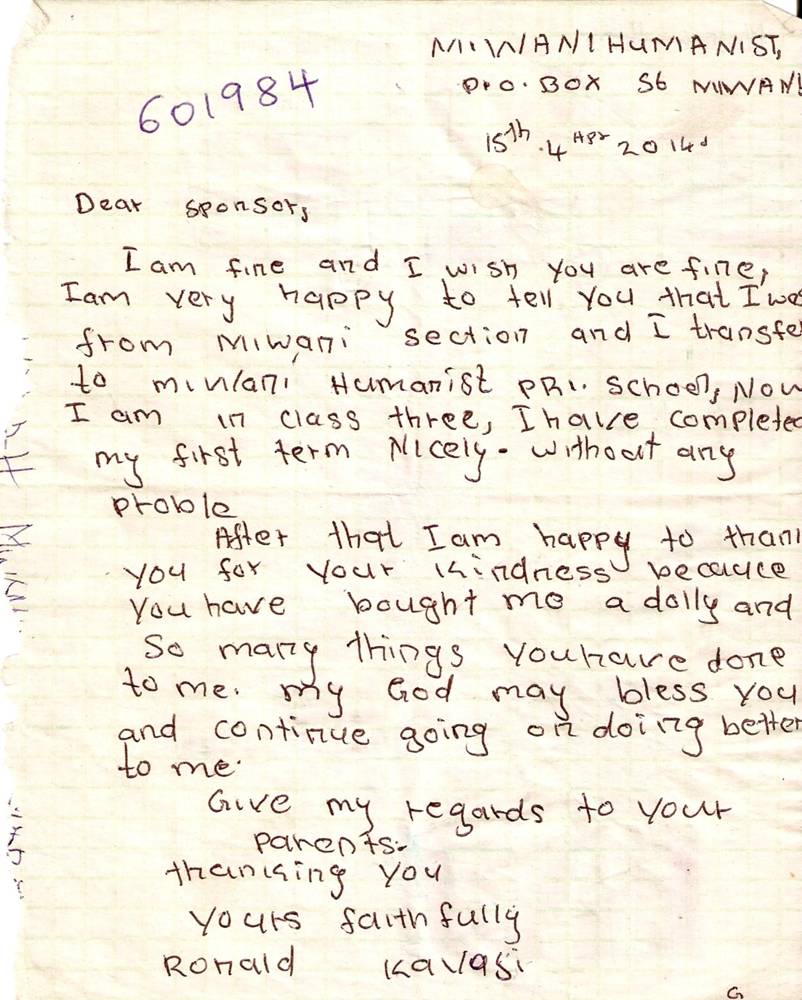 MIWANI HUMANIST,
P.O. BOX 56 MIWANI
601984
15th .4 Apr 2014.
Dear sponsor,
I am fine and I wish you are fine,
I am very happy to tell you that I was
from Miwani section and I transfer
to miwani Humanist PRI. School, Now
I am in class three, I have completed
my first term Nicely. without any
proble
After that I am happy to thank
you for your kindness becauce
you have bought me a dolly and
So many things you have done
to me. my God may bless you
and continue going on doing better
to me.
Give my regards to your
parents.
thanking you
yours faithfully
Ronald Kavasi